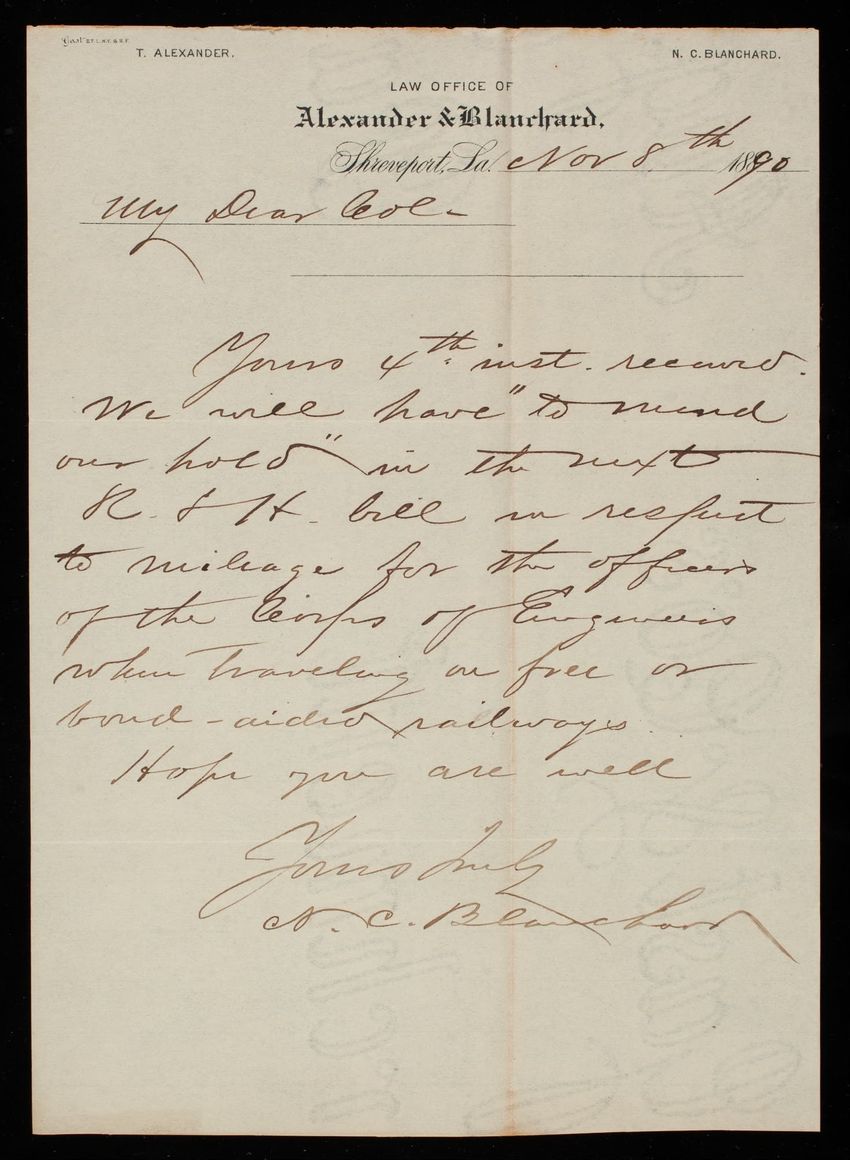 T. ALEXANDER.
N. C. BLANCHARD.
LAW OFFICE OF
Alexander & Blanchard.
Shreveport, La. Nov 8th 1890
My Dear Col-
Yours 4th inst. received.
We will have "to mend
our hold" in the next
R. & H. bill in respect
to mileage for the officers
of the Corps of Engineers
when traveling on free or
bond-aided railways.
Hope you are well
Yours truly
N. C. Blanchard